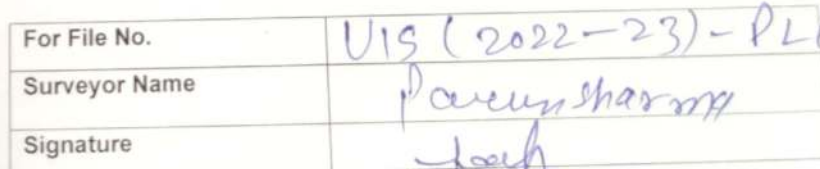 For File No. VIS (2022-23) - PL
Surveyor Name Parun Sharma
Signature